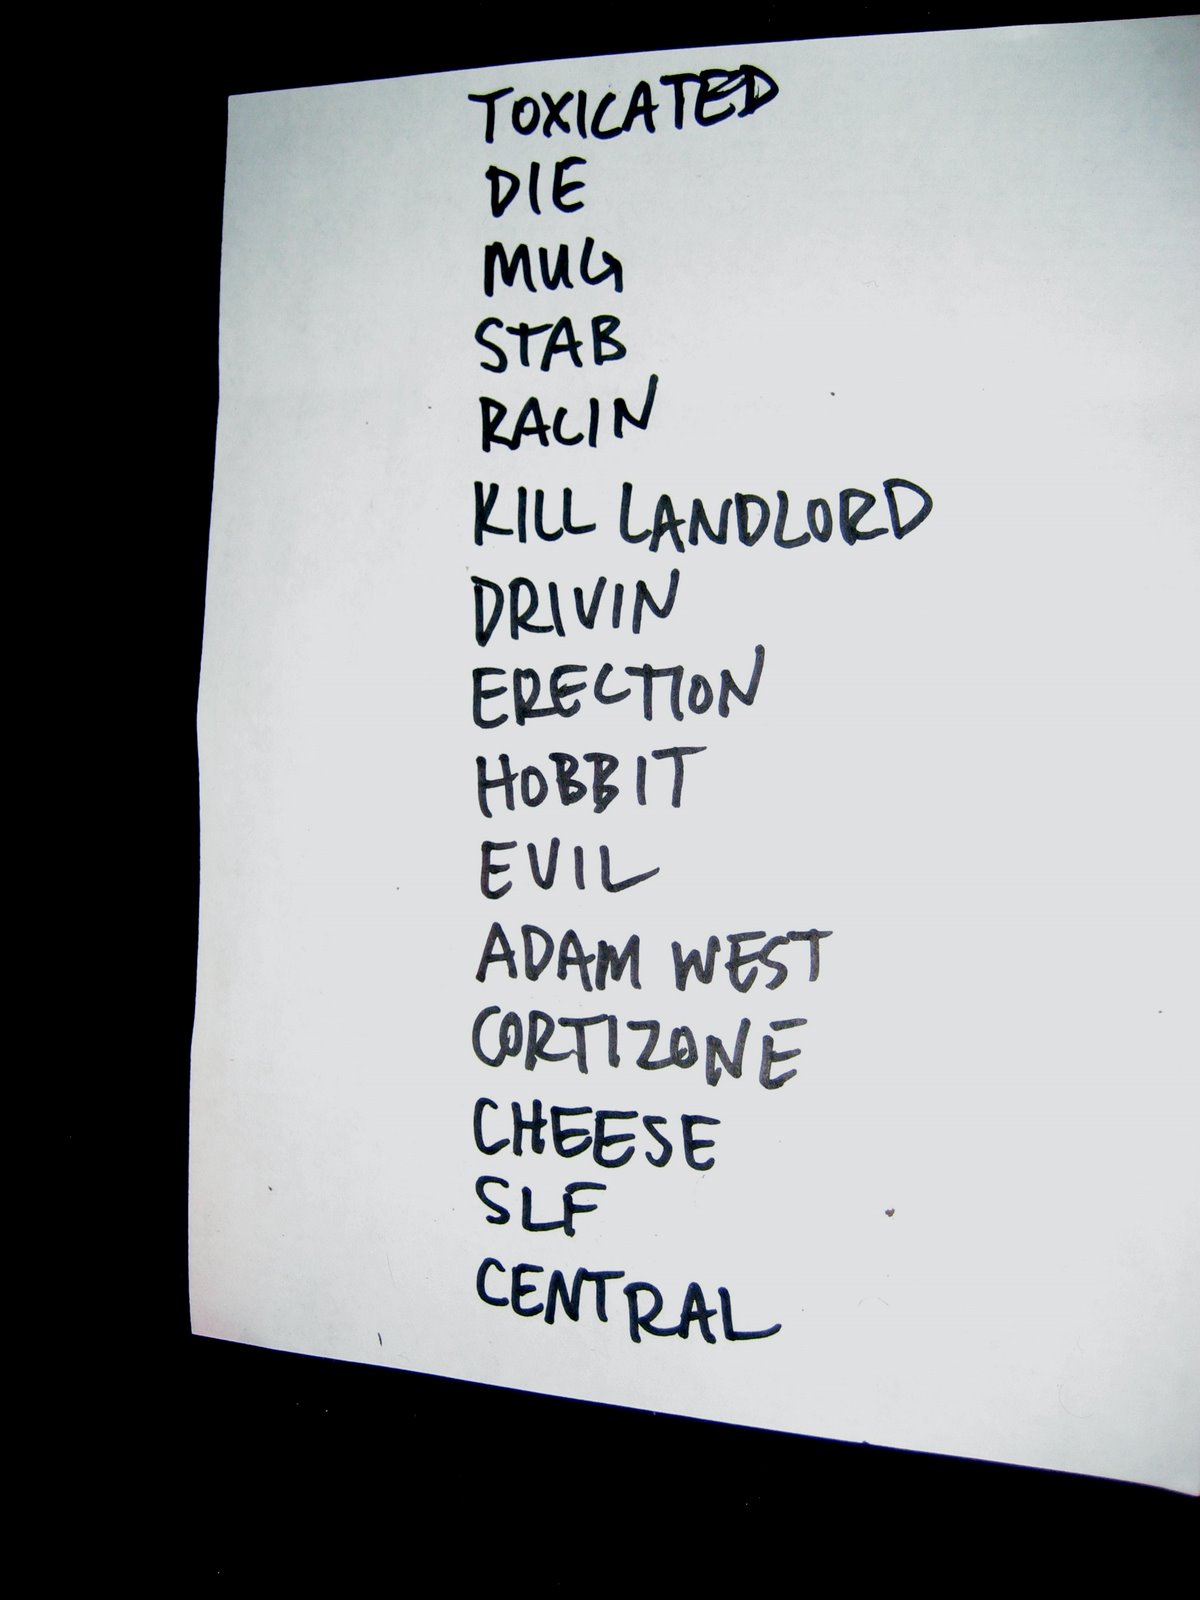 TOXICATED
DIE
MUG
STAB
RACIN
KILL LANDLORD
DRIVIN
ERECTION
HOBBIT
EVIL
ADAM WEST
CORTIZONE
CHEESE
SLF
CENTRAL